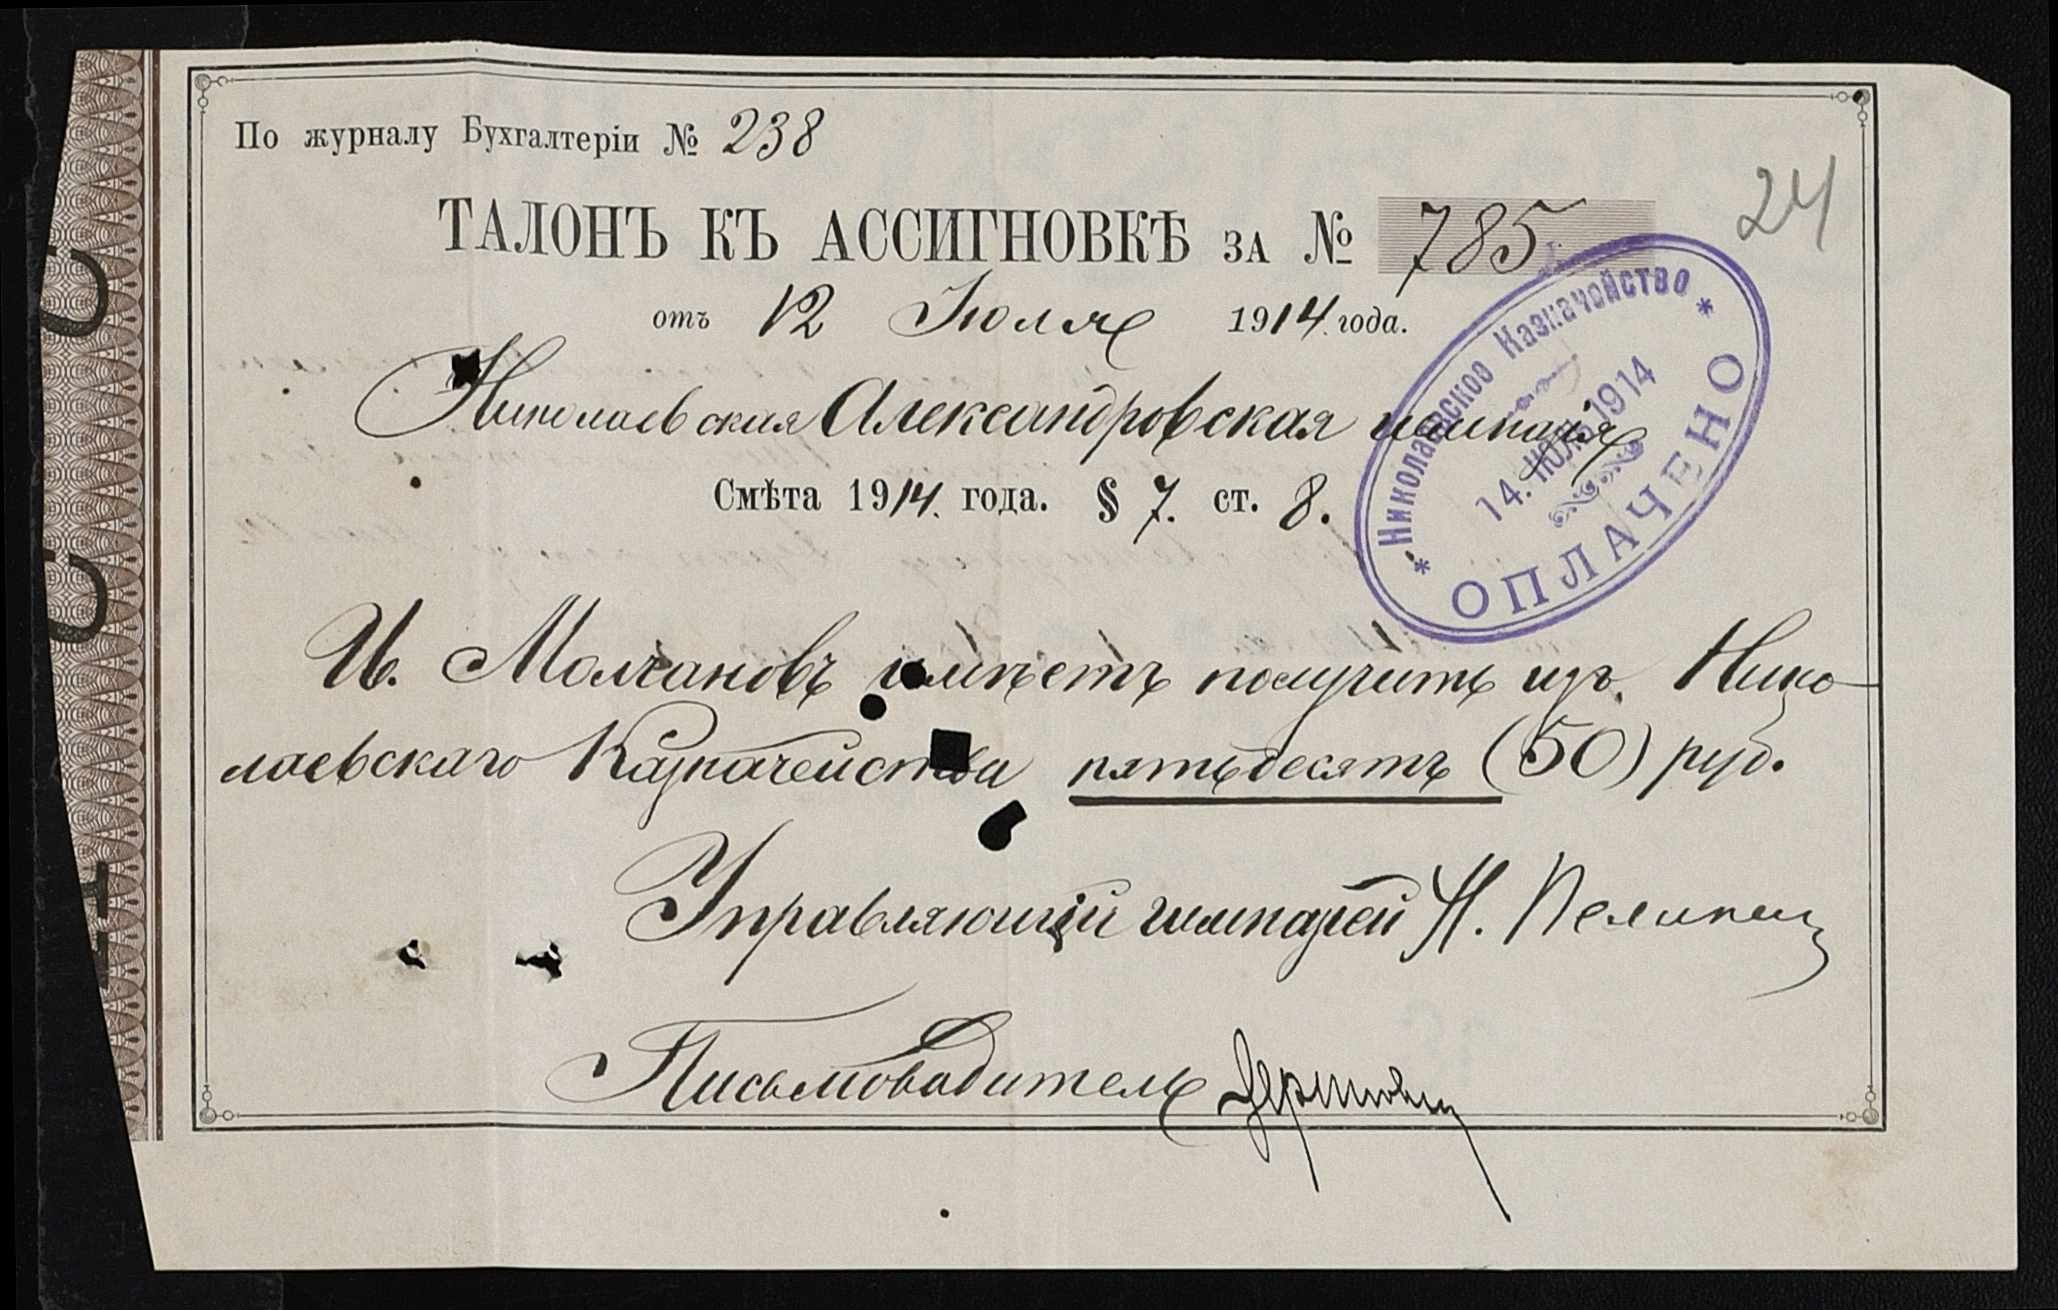 По журналу Бухгалтеріи № 238
24
ТАЛОНЪ КЪ АССИГНОВКѢ ЗА № 785
отъ 12 Іюля 1914 года.
Николаевская Александровская гимназія
Смѣта 1914 года. § 7. ст. 8.
* Николаевское Казначейство *
14. ІЮЛ. 1914
ОПЛАЧЕНО
И. Молчановъ имѣетъ получить изъ Нико-
лаевскаго Казначейства пятьдесятъ (50) руб.
Управляющій гимназіей Н.
Письмоводитель